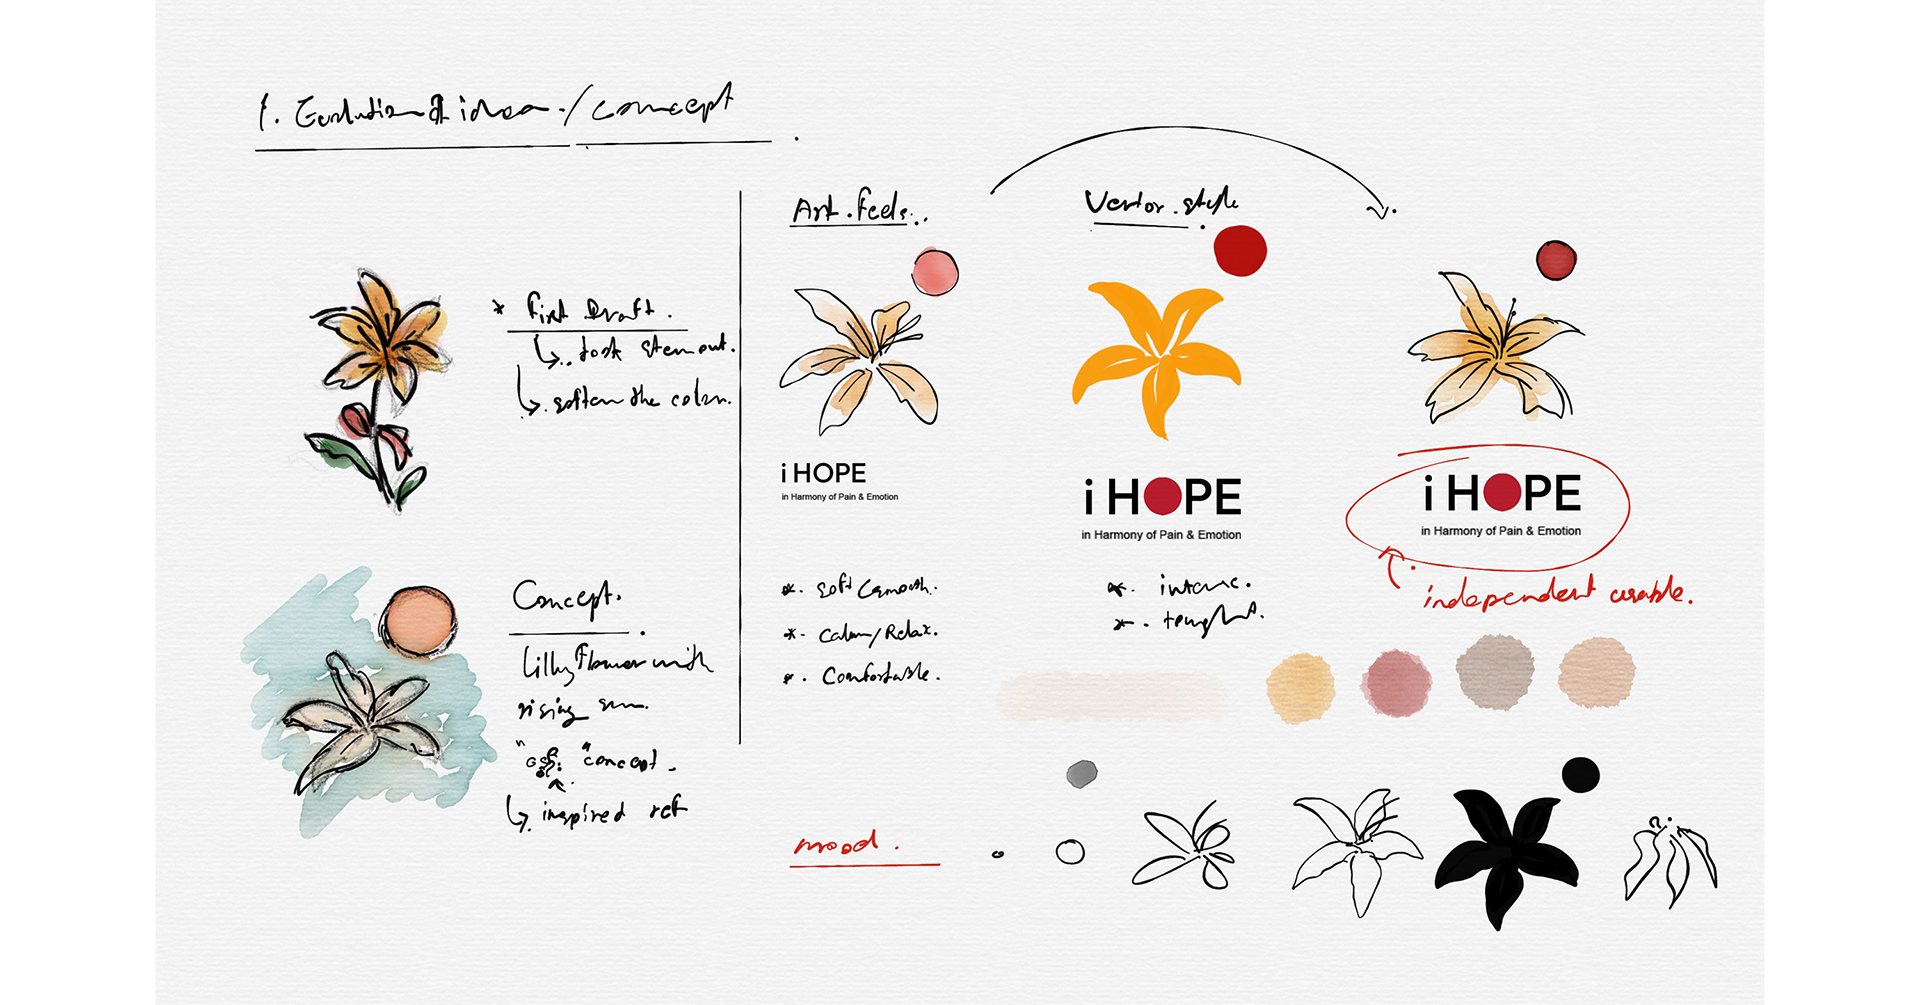 1. Evolution of idea / concept
* First Draft.
took stem out.
soften the color.
Concept.
Lilly Flower with
rising sun.
" " concept.
inspired ref
Art. feels..
i HOPE
in Harmony of Pain & Emotion
*. Soft & smooth.
*. Calm/Relax.
*. Comfortable.
Vector. style
i HOPE
in Harmony of Pain & Emotion
*. intense.
*.
i HOPE
in Harmony of Pain & Emotion
independent usable.
mood.